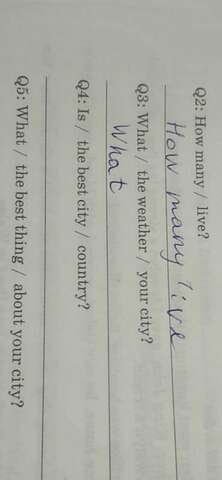 Q2: How many / live?
How many live
Q3: What / the weather / your city?
What
Q4: Is / the best city / country?
Q5: What / the best thing / about your city?